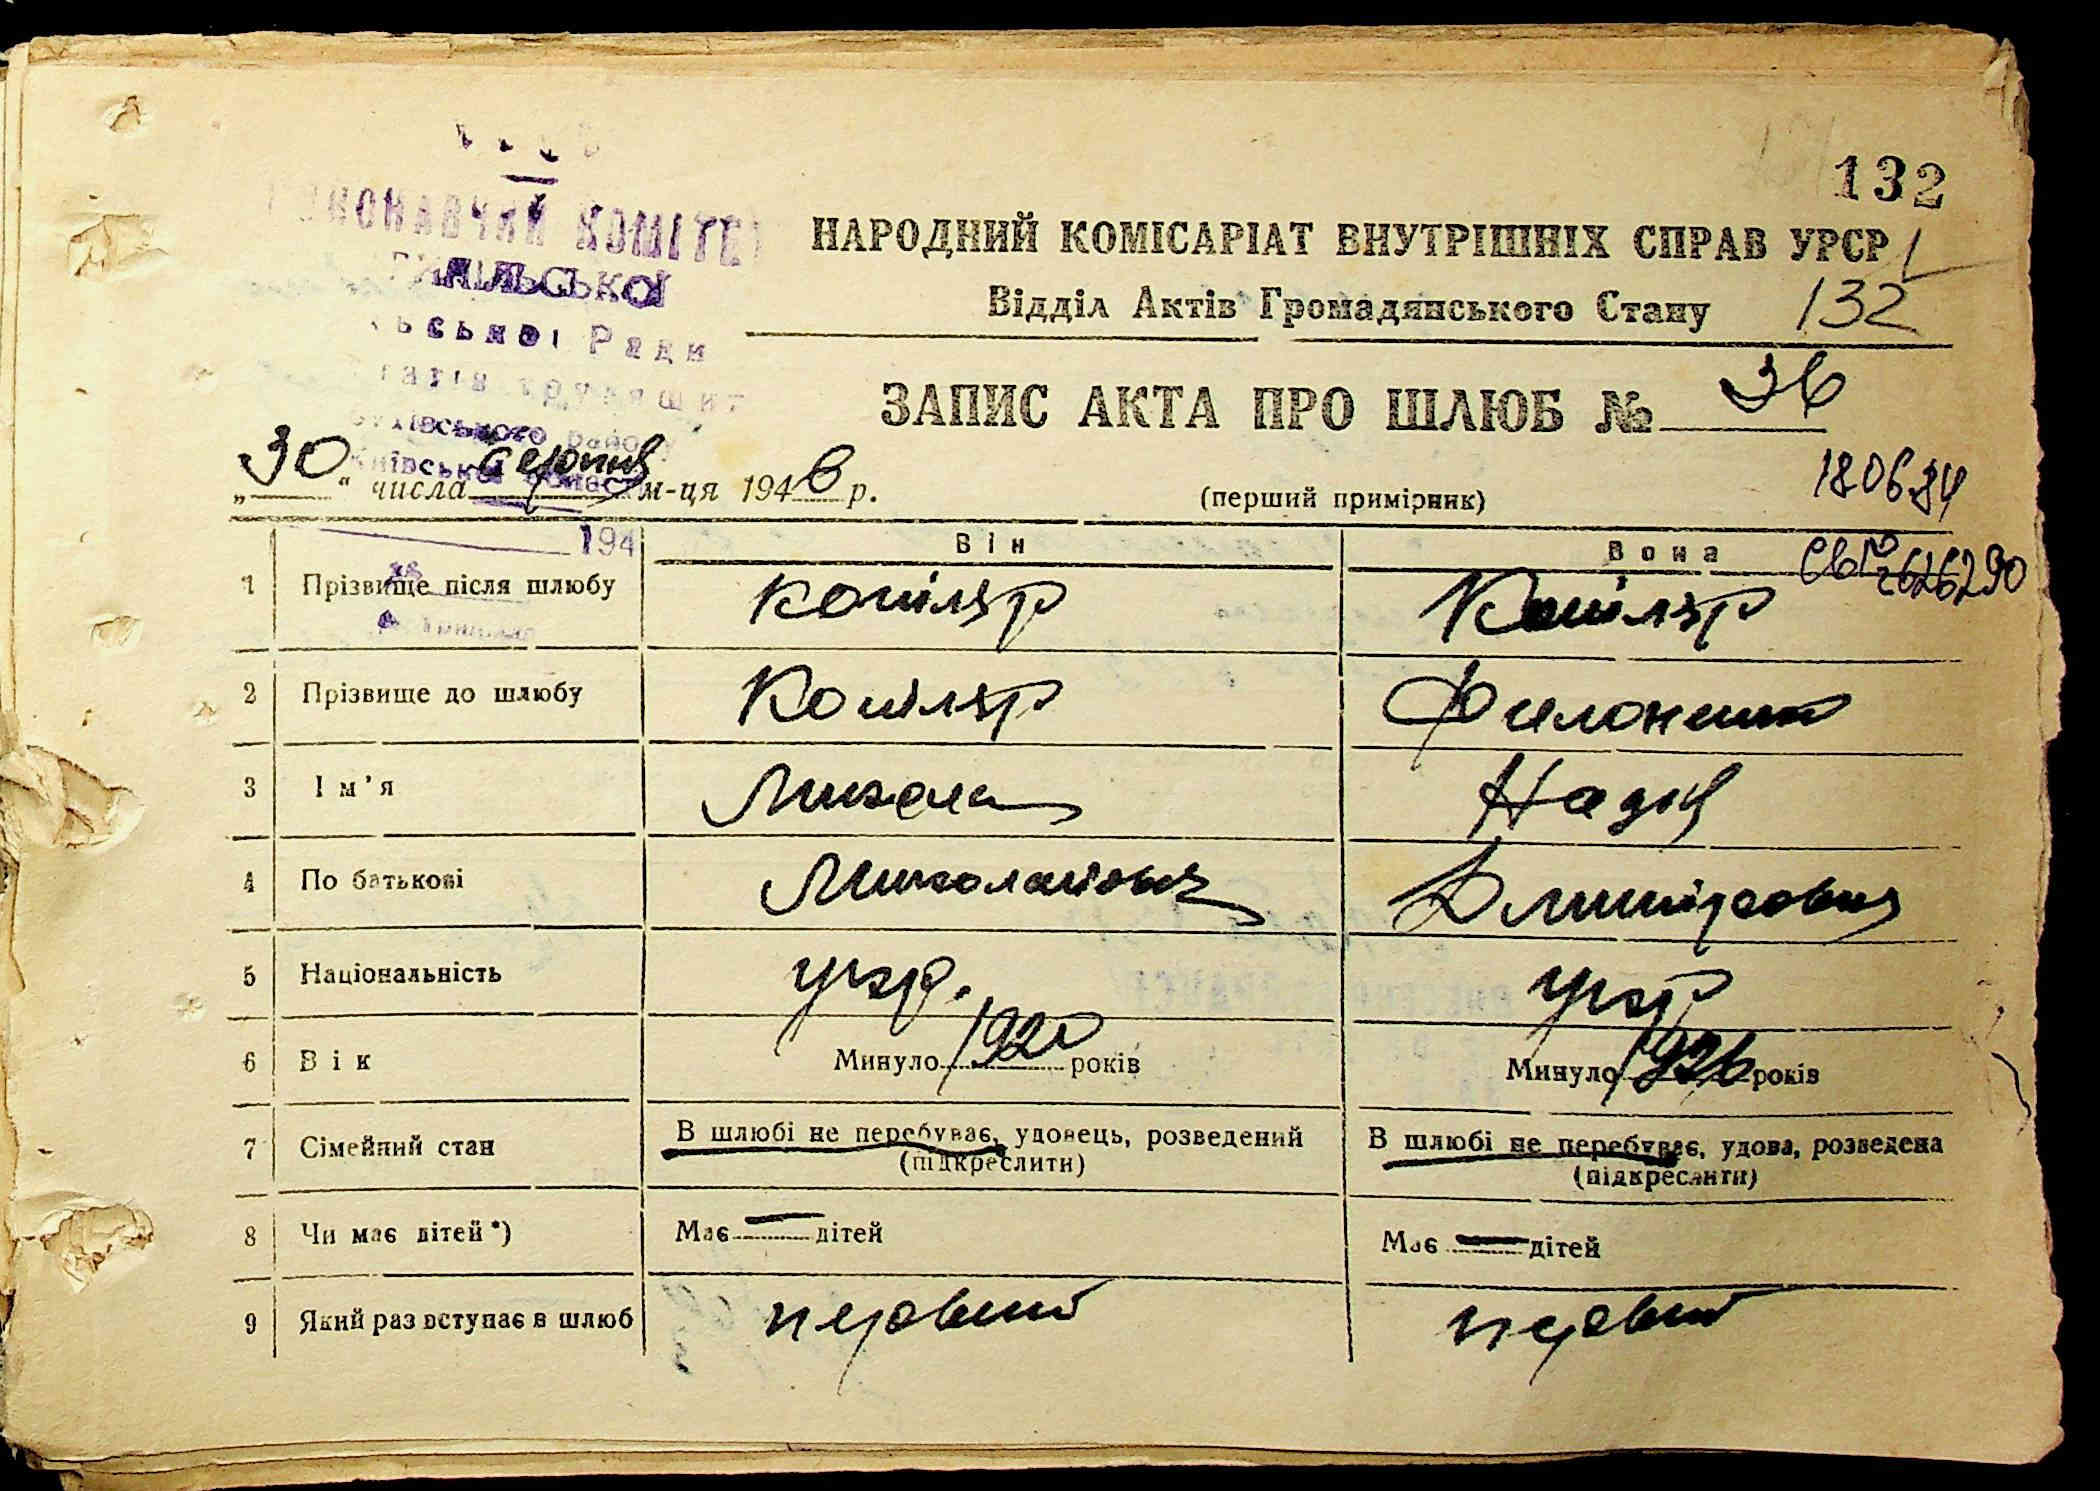 132
НАРОДНИЙ КОМІСАРІАТ ВНУТРІШНІХ СПРАВ УРСР
Відділ Актів Громадянського Стану 132
ЗАПИС АКТА ПРО ШЛЮБ № 36
ВИКОНАВЧИЙ КОМІТЕТ
сільської Ради
депутатів трудящих
району
Київської області
194
„30“ числа серпня м-ця 1946 р.
(перший примірник)
180684
св№ 2626290
Він Вона
1 Прізвище після шлюбу Котляр Котляр
2 Прізвище до шлюбу Котляр Филоненко
3 Ім'я Микола Надія
4 По батькові Миколайович Дмитровна
5 Національність укр. укр
6 Вік Минуло 1920 років Минуло 1926 років
7 Сімейний стан В шлюбі не перебуває, удовець, розведений (підкреслити) В шлюбі не перебуває, удова, розведена (підкреслити)
8 Чи має дітей*) Має — дітей Має — дітей
9 Який раз вступає в шлюб первий первий